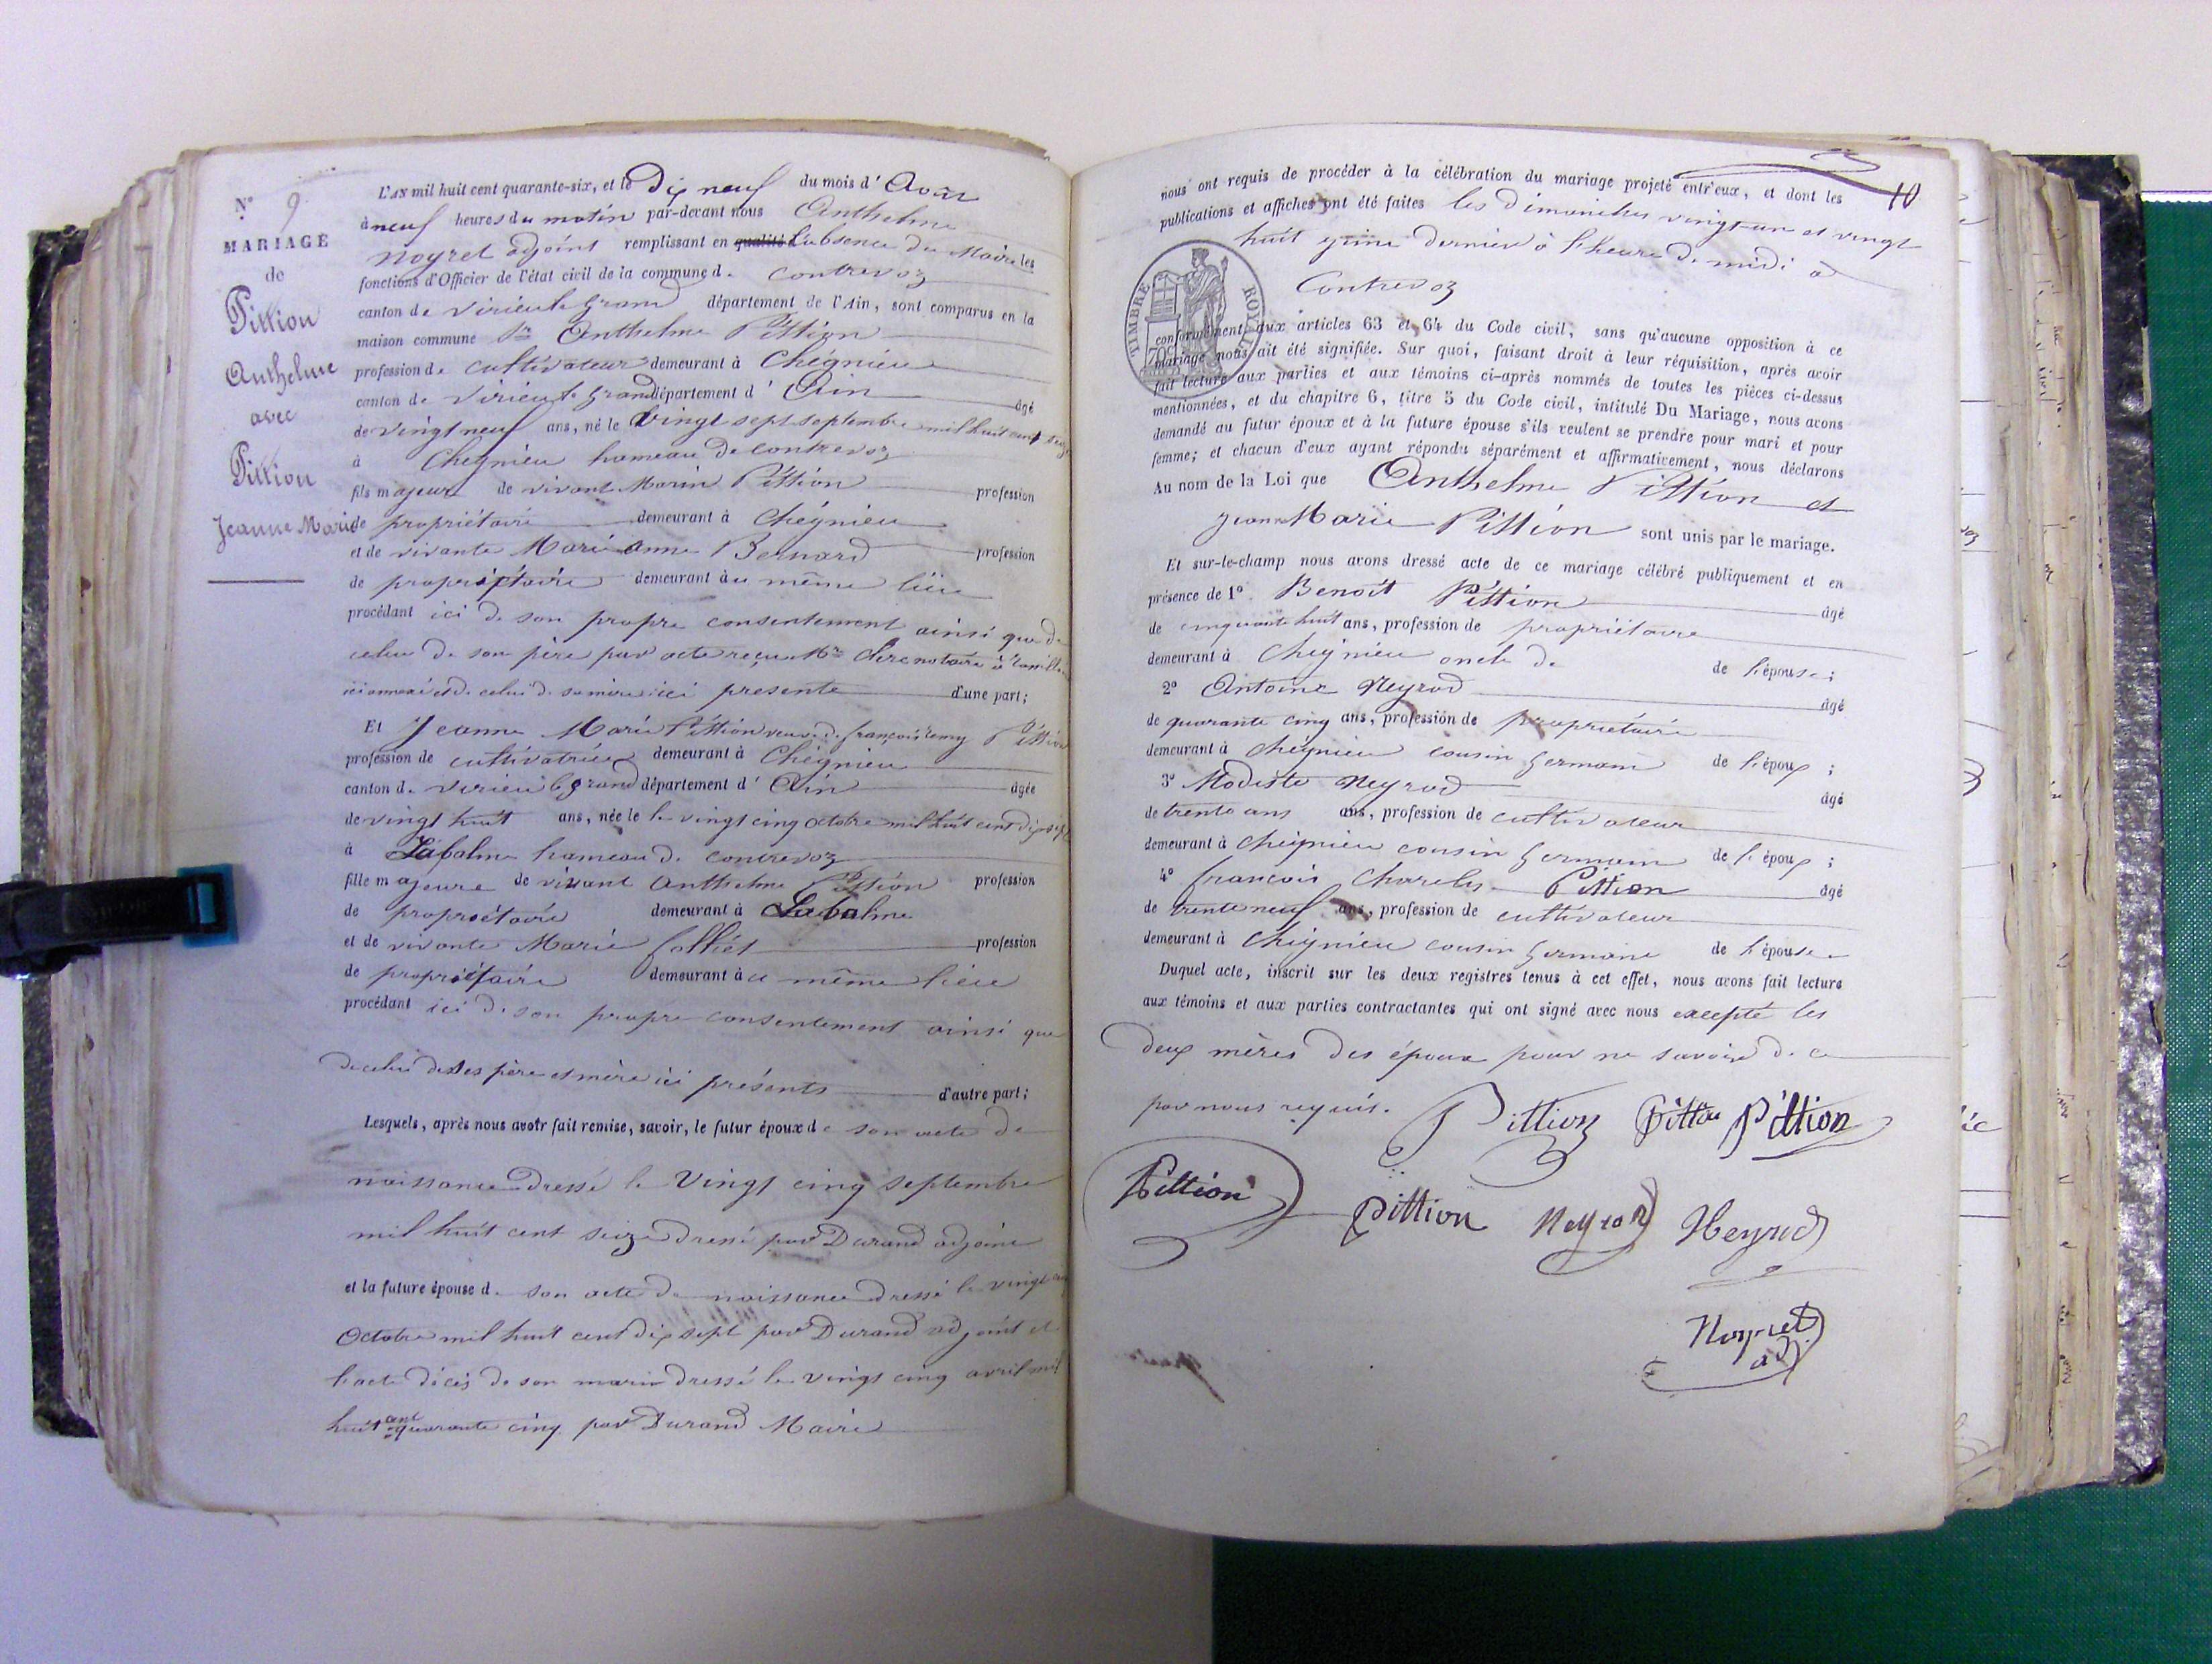 N° 9
MARIAGE
de
Pittion
Anthelme
avec
Pittion
Jeanne Marie
L'AN mil huit cent quarante-six, et le Dix neuf du mois d'Août
à neuf heures du matin par-devant nous Anthelme
Noyret adjoint remplissant en qualité l'absence du Maire les
fonctions d'Officier de l'état civil de la commune de Contrevoz
canton de Virieu le grand département de l'Ain, sont comparus en la
maison commune Sr Anthelme Pittion
profession de cultivateur demeurant à Cheignieu
canton de Virieu le Grand département d' Ain âgé
de vingt neuf ans, né le vingt sept septembre mil huit cent seize
à Cheignieu hameau de contrevoz
fils majeur de vivant Marin Pittion profession
de propriétaire demeurant à Cheignieu
et de vivante Marie anne Bernard profession
de propriétaire demeurant au même lieu
procédant ici de son propre consentement ainsi que de
celui de son père par acte reçu Mre notaire à
ici annexé et de celui de sa mère ici presente d'une part;
Et Jeanne Marie Pittion veuve de françois remy Pittion
profession de cultivatrice demeurant à Cheignieu
canton de virieu le grand département d' Ain âgée
de vingt huit ans, née le le vingt cinq octobre mil huit cent dix sept
à Labalme hameau de contrevoz
fille majeure de vivant Anthelme Pittion profession
de propriétaire demeurant à Labalme
et de vivante Marie profession
de propriétaire demeurant à u même lieu
procédant ici de son propre consentement ainsi que
de celui de ses père et mère ici présents d'autre part;
Lesquels, après nous avoir fait remise, savoir, le futur époux de son acte de
naissance dressé le Vingt cinq septembre
mil huit cent seize dressé par Durand adjoint
et la future épouse de son acte de naissance dressé le vingt cinq
Octobre mil huit cent dix sept par Durand adjoint et
l'acte décès de son marin dressé le vingt cinq avril mil
huit cent quarante cinq par Durand Maire
10
nous ont requis de procéder à la célébration du mariage projeté entr'eux, et dont les
publications et affiches ont été faites les dimanches vingt-un et vingt
huit dernier à l'heure de midi à
Contrevoz
TIMBRE ROYAL
70c
conformément aux articles 63 et 64 du Code civil, sans qu'aucune opposition à ce
mariage nous ait été signifiée. Sur quoi, faisant droit à leur réquisition, après avoir
fait lecture aux parties et aux témoins ci-après nommés de toutes les pièces ci-dessus
mentionnées, et du chapitre 6, titre 5 du Code civil, intitulé Du Mariage, nous avons
demandé au futur époux et à la future épouse s'ils veulent se prendre pour mari et pour
femme; et chacun d'eux ayant répondu séparément et affirmativement, nous déclarons
Au nom de la Loi que Anthelme Pittion et
Jeanne Marie Pittion sont unis par le mariage.
Et sur-le-champ nous avons dressé acte de ce mariage célébré publiquement et en
présence de 1° Benoit Pittion âgé
de cinquante huit ans, profession de propriétaire
demeurant à Cheignieu oncle de de l'épouse;
2° Antoine Neyrod âgé
de quarante cinq ans, profession de propriétaire
demeurant à cheignieu cousin germain de l'époux;
3° Modeste Neyrod âgé
de trente ans ans, profession de cultivateur
demeurant à cheignieu cousin germain de l'époux;
4° françois Charles Pittion âgé
de trente neuf ans, profession de cultivateur
demeurant à cheignieu cousin germain de l'épouse
Duquel acte, inscrit sur les deux registres tenus à cet effet, nous avons fait lecture
aux témoins et aux parties contractantes qui ont signé avec nous excepté les
deux mères des époux pour ne savoir de ce
par nous requis.
Pittion Pittion Pittion
Pittion Pittion Neyrod Neyrod
Noyret
adj.